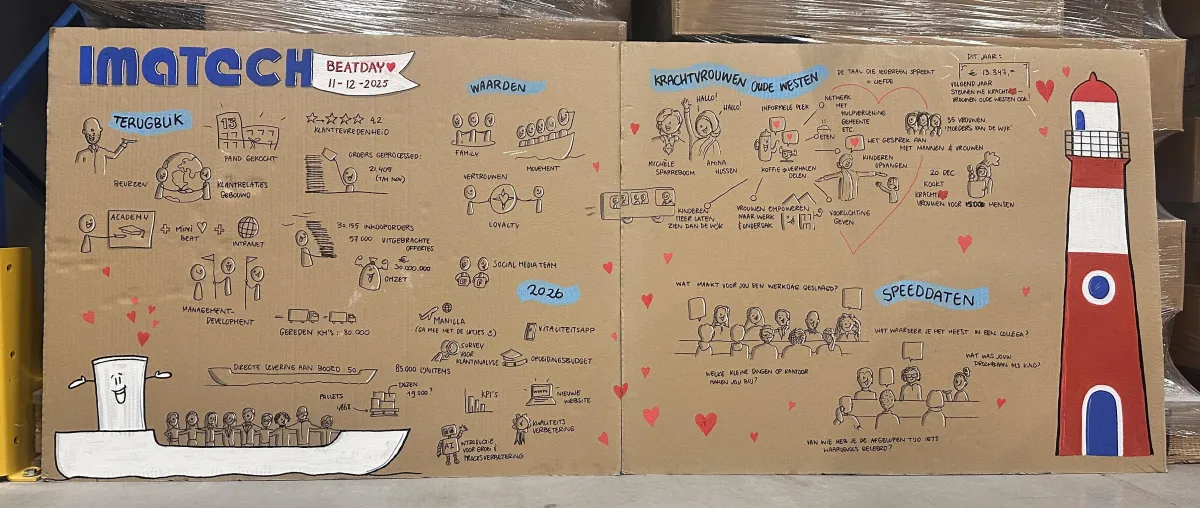 IMATECH
BEATDAY
11-12-2025
TERUGBLIK
BEURZEN
13
PAND GEKOCHT
KLANTRELATIES
GEBOUWD
4.2
KLANTTEVREDENHEID
ORDERS GEPROCESSED:
21.409
(T/M NOV)
ACADEMY
+ MINI
BEAT
+
INTRANET
30.155 INKOOPORDERS
57.000 UITGEBRACHTE
OFFERTES
€
30.000.000
OMZET
MANAGEMENT-
DEVELOPMENT
GEREDEN KM'S: 80.000
DIRECTE LEVERING AAN BOORD: 50
85.000 LIJNITEMS
PALLETS
DOZEN
19.000?
WAARDEN
FAMILY
MOVEMENT
VERTROUWEN
LOYALTY
SOCIAL MEDIA TEAM
2026
MANILLA
(GA MEE MET DE UITJES :))
VITALITEITSAPP
SURVEY
VOOR
KLANTANALYSE
OPLEIDINGSBUDGET
KPI'S
WWW
NIEUWE
WEBSITE
AI
INTRODUCTIE
VOOR GROEI &
PROCESVERBETERING
KWALITEITS
VERBETERING
KRACHTVROUWEN OUDE WESTEN
DE TAAL DIE IEDEREEN SPREEKT
= LIEFDE
DIT JAAR:
€ 13.347,-
VOLGEND JAAR
STEUNEN WE KRACHT
VROUWEN OUDE WESTEN OOK!
HALLO!
HALLO!
MICHÈLE
SPAPREBOOM
AMINA
HUSSEN
INFORMELE PLEK
NETWERK
MET
HULPVERLENING
GEMEENTE
ETC.
ETEN
KOFFIE & VERHALEN
DELEN
35 VROUWEN
'MOEDERS VAN DE WIJK'
HET GESPREK AAN
MET MANNEN & VROUWEN
KINDEREN
OPVANGEN
20 DEC
KOOKT
KRACHT
VROUWEN VOOR MENSEN
KINDEREN
MEER LATEN
ZIEN DAN DE WIJK
VROUWEN EMPOWEREN
NAAR WERK
& ONDERDAK
VOORLICHTING
GEVEN
SPEEDDATEN
WAT MAAKT VOOR JOU EEN WERKDAG GESLAAGD?
WAT WAARDEER JE HET MEEST IN EEN COLLEGA?
WELKE KLEINE DINGEN OP KANTOOR
MAKEN JOU BLIJ?
WAT WAS JOUW
DROOMBAAN ALS KIND?
VAN WIE HEB JE DE AFGELOPEN TIJD IETS
WAARDEVOLS GELEERD?